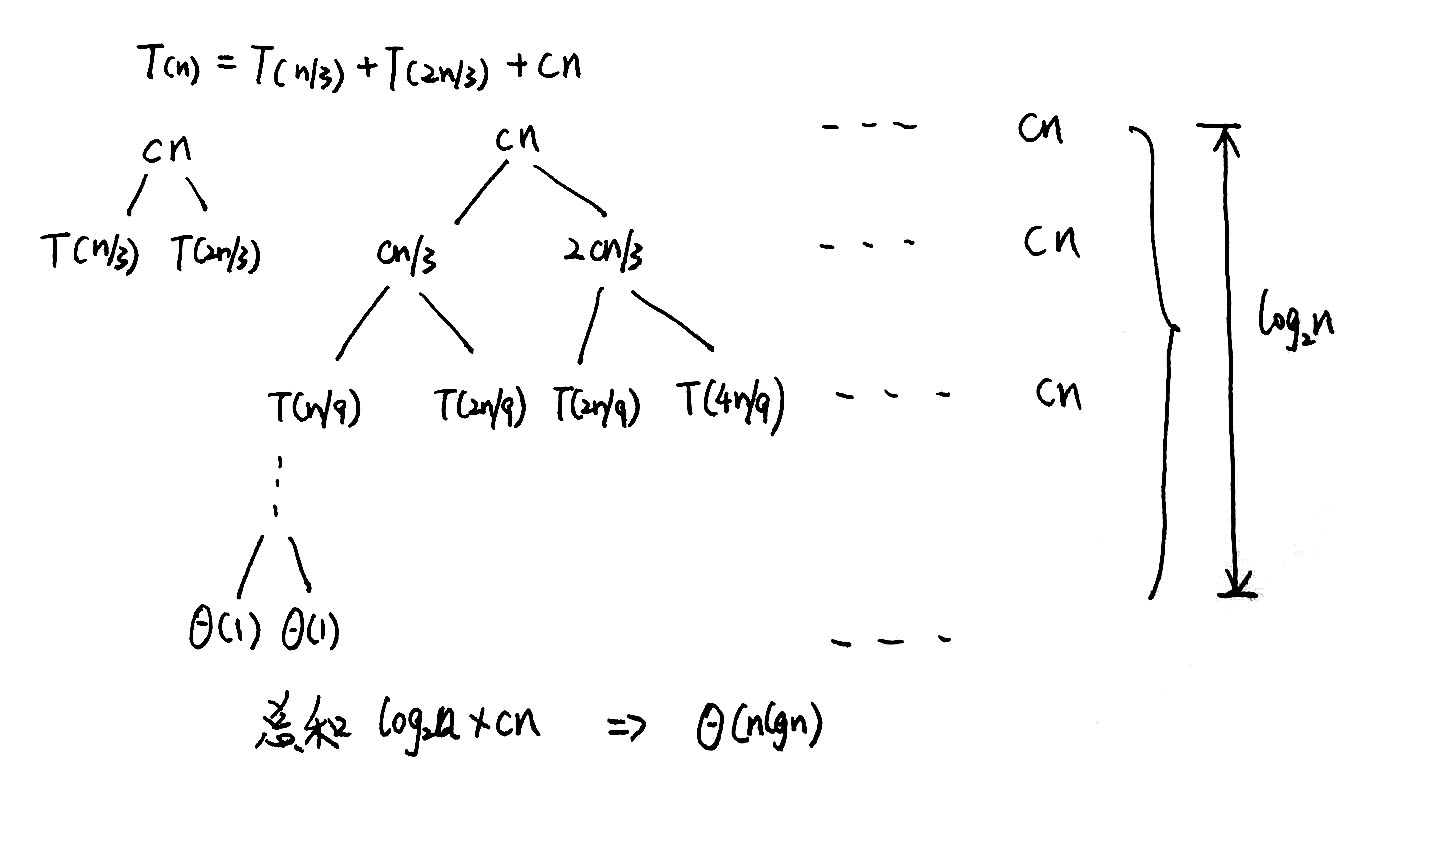 T(n) = T(n/3) + T(2n/3) + cn
cn
T(n/3) T(2n/3)
cn --- cn
cn/3 2cn/3 --- cn
T(n/9) T(2n/9) T(2n/9) T(4n/9) --- cn
log₂n
θ(1) θ(1) ---
总和 log₂n × cn => θ(nlgn)